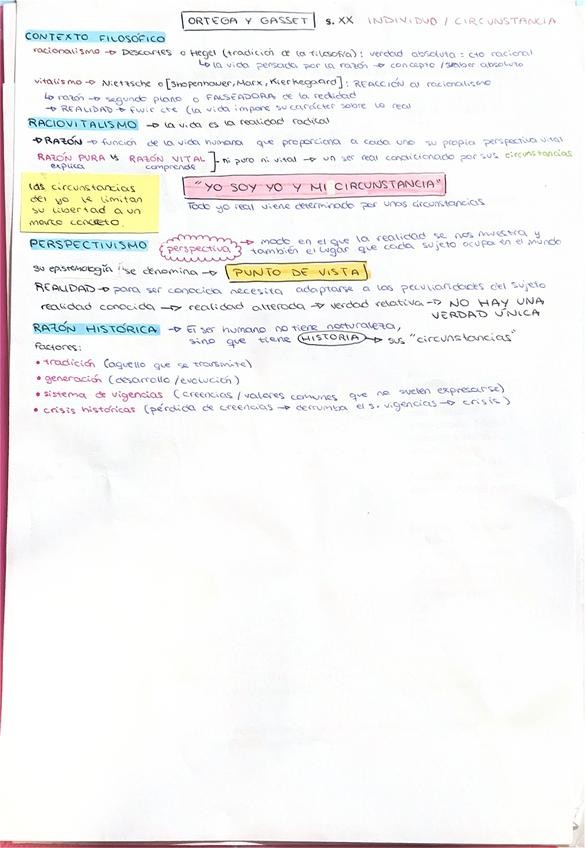 ORTEGA Y GASSET s. XX INDIVIDUO / CIRCUNSTANCIA
CONTEXTO FILOSÓFICO
racionalismo → Descartes o Hegel (tradición de la filosofía): verdad absoluta: cto racional
↳ la vida pensada por la razón → concepto / saber absoluto
vitalismo → Nietzsche o [Shopenhower, Marx, Kierkegaard]: REACCIÓN al racionalismo
↳ razón → segundo plano o FALSEADORA de la realidad
→ REALIDAD → fluir cte (la vida impone su carácter sobre lo real
RACIOVITALISMO → la vida es la realidad radical
→ RAZÓN → función de la vida humana que proporciona a cada uno su propia perspectiva vital
RAZÓN PURA vs RAZÓN VITAL ] - ni puro ni vital → un ser real condicionado por sus circunstancias
explica comprende
las circunstancias
del yo le limitan
su libertad a un
marco concreto.
"YO SOY YO Y MI CIRCUNSTANCIA"
Todo yo real viene determinado por unas circunstancias
PERSPECTIVISMO perspectiva → modo en el que la realidad se nos muestra y
también el lugar que cada sujeto ocupa en el mundo
su epistemología se denomina → PUNTO DE VISTA
REALIDAD → para ser conocida necesita adaptarse a las peculiaridades del sujeto
realidad conocida → realidad alterada → verdad relativa → NO HAY UNA
VERDAD ÚNICA
RAZÓN HISTÓRICA → El ser humano no tiene naturaleza,
sino que tiene HISTORIA → sus "circunstancias"
Factores:
• tradición (aquello que se transmite)
• generación (desarrollo / evolución)
• sistema de vigencias (creencias / valores comunes que no suelen expresarse)
• crisis históricas (pérdida de creencias → derrumba el s. vigencias → crisis)